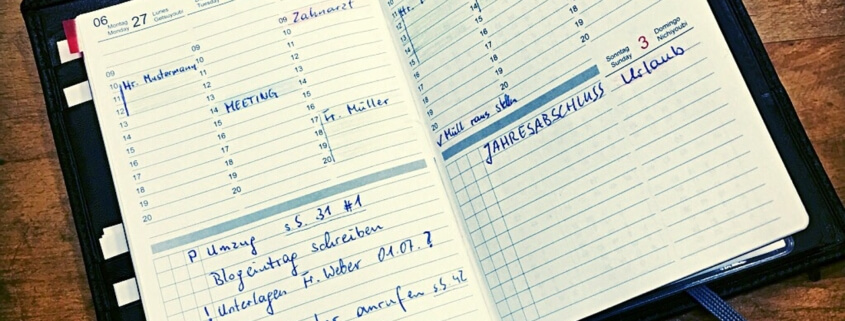 06
Montag
Monday
27
Lunes
Getsuyoubi
Tuesday
09
10
11
12
13
14
15
16
17
18
19
20
Hr. Mustermann
09
10
11
12
13
14
15
16
17
18
19
20
MEETING
09
Zahnarzt
10
11
12
13
14
15
16
17
18
19
20
Fr. Müller
P Umzug s.S. 31 #1
Blogeintrag schreiben
! Unterlagen Fr. Weber 01.07. ?
anrufen s.S. 42
Hr.
11
12
13
14
15
16
17
18
19
20
14
15
16
17
18
19
20
✓ Müll raus stellen
Sonntag
Sunday
3
Domingo
Nichiyoubi
JAHRESABSCHLUSS
Urlaub